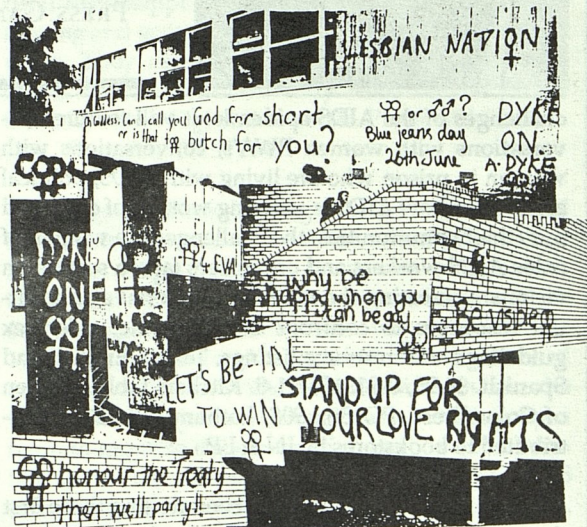 LESBIAN NATION
O Goddess, Can I call you God for short
or is that too butch for you?
⚢ or ⚣?
Blue jeans day
26th June
DYKE
ON
A. DYKE
DYKE
ON
⚢ 4 EVA
why be
happy when you
can be gay
Be visible
LET'S BE-IN
TO WIN
STAND UP FOR
YOUR LOVE RIGHTS
honour the Treaty
then we'll party!!